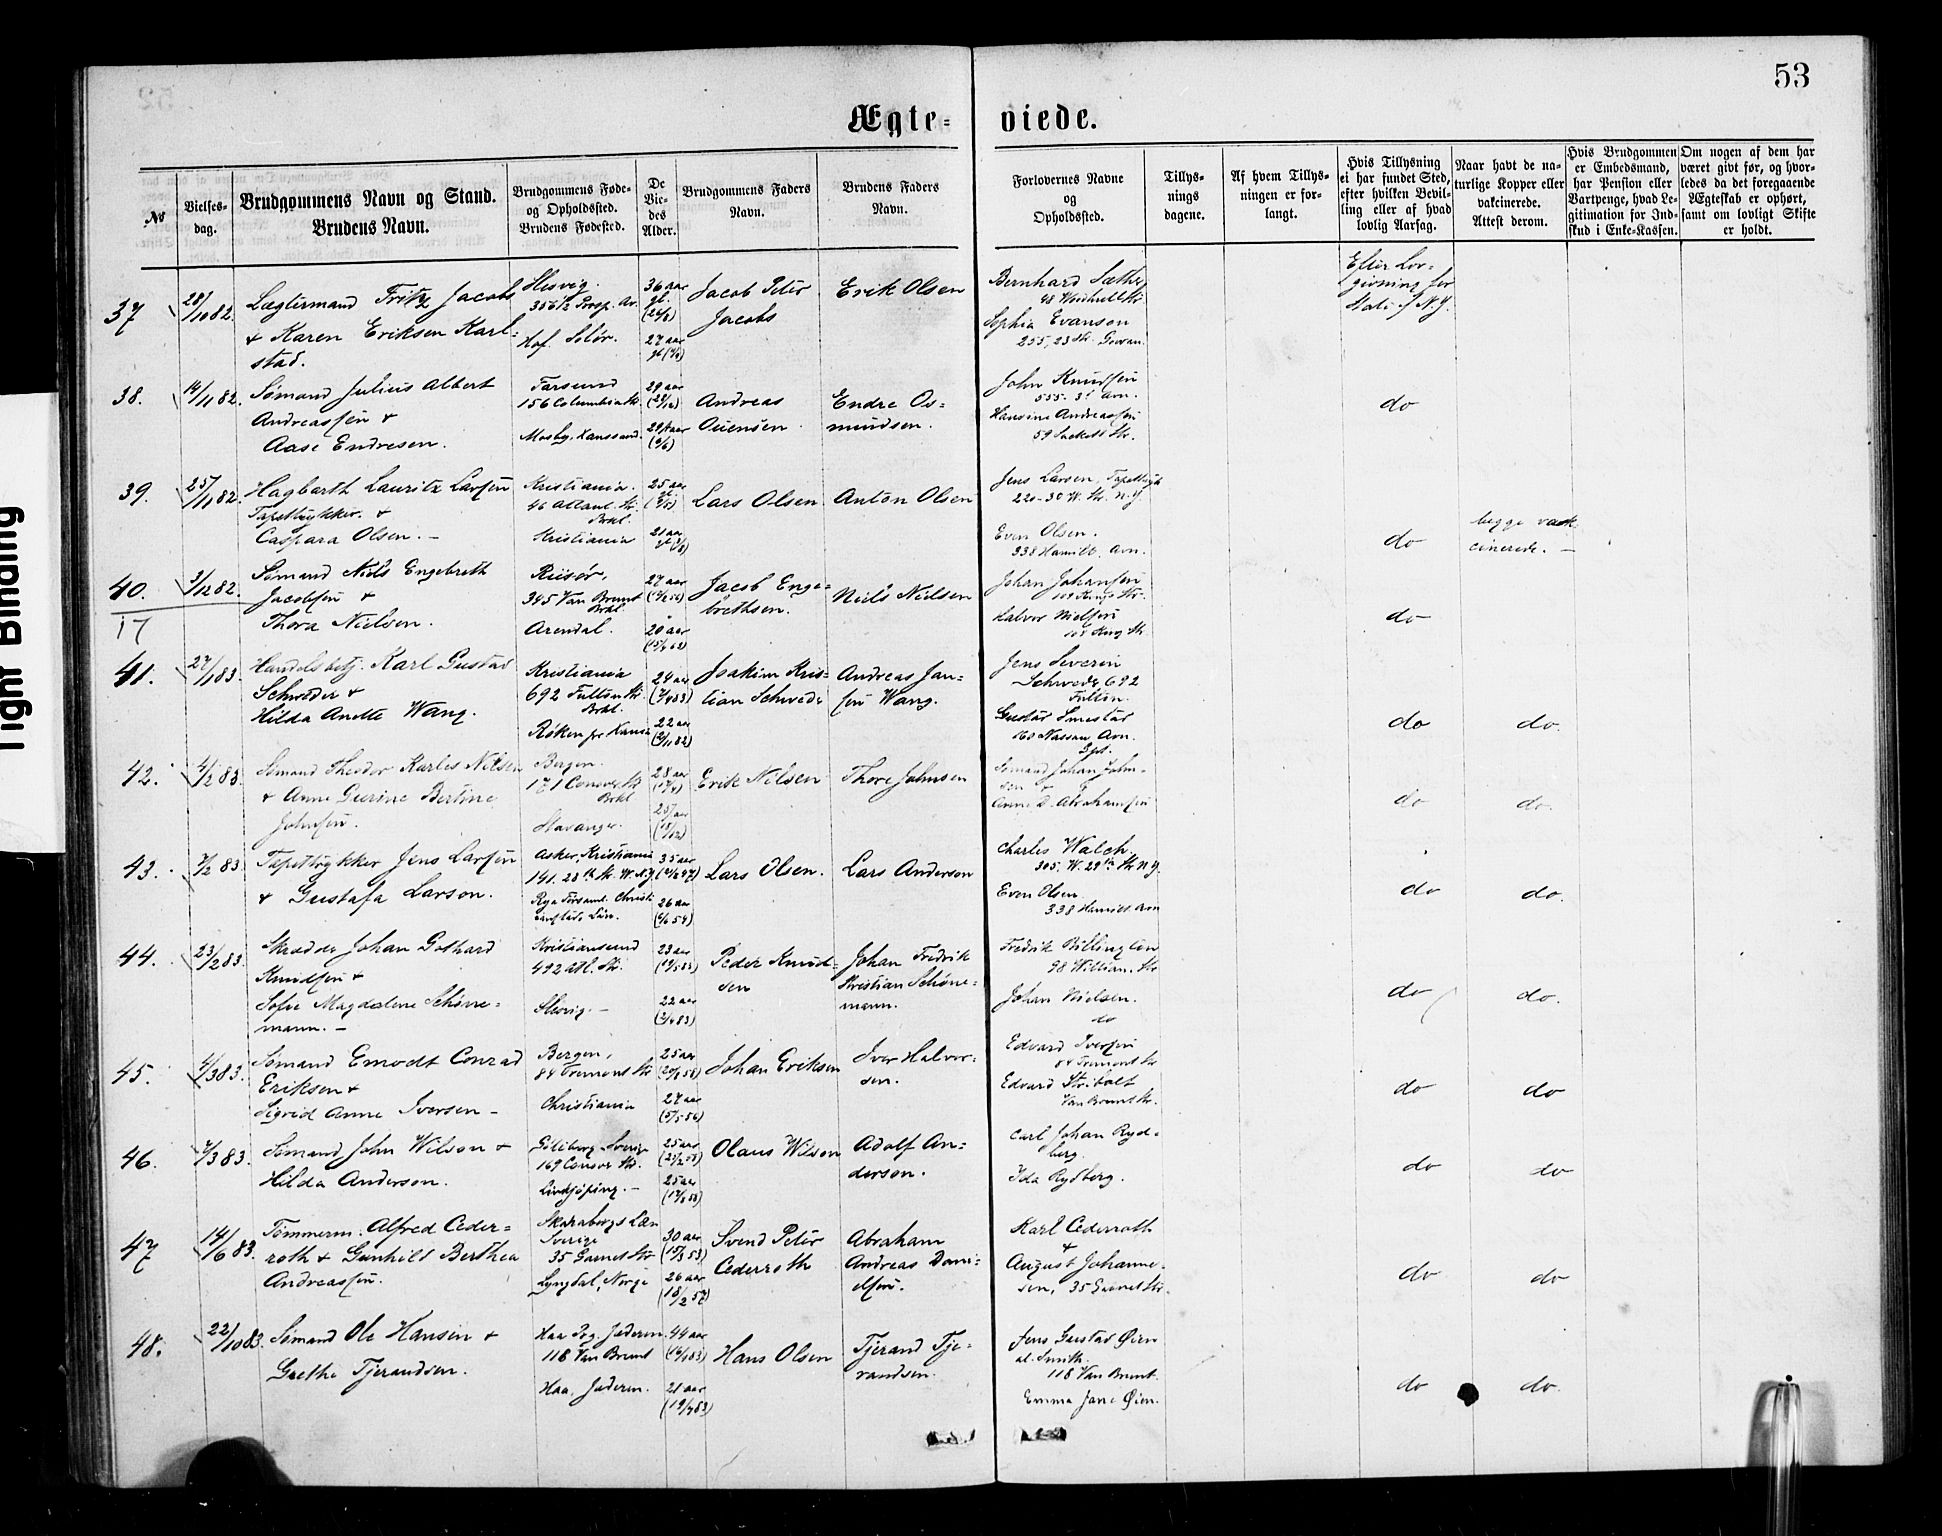 53
Ægte=
viede.
№
Vielses-
dag.
Brudgommens Navn og Stand.
Brudens Navn.
Brudgommens Føde-
og Opholdssted.
Brudens Fødested.
De
Vie-
des
Alder.
Brudgommens Faders
Navn.
Brudens Faders
Navn.
Forlovernes Navne
og
Opholdssted.
Tillys-
nings
dagene.
Af hvem Tillys-
ningen er for-
langt.
Hvis Tillysning
ei har fundet Sted,
efter hvilken Bevil-
ling eller af hvad
lovlig Aarsag.
Naar havt de na-
turlige Kopper eller
vakcinerede.
Attest derom.
Hvis Brudgommen
er Embedsmand,
har Pension eller
Vartpenge, hvad Le-
gitimation for Ind-
skud i Enke-Kassen.
Om nogen af dem har
været givt før, og hvor-
ledes da det foregaaende
Ægteskab er ophørt,
samt om lovligt Skifte
er holdt.
37
28/10 82.
Lægtermand Fritz Jacobs
& Karen Eriksen Karl-
stad.
Slesvig.
356½ Prosp. Av.
Hof. Solør.
36 aar
27 aar
Jacob Peter
Jacobs
Erik Olsen
Bernhard Sæther
Sophia Evanson
255, 23 Str. Gowan.
Efter Lov-
givning for
State of N.Y.
38.
14/11 82.
Sømand Julius Albert
Andreassen &
Aase Endresen.
Farsund
156 Columbia Str.
Mosby, Kanssand.
29 aar
Andreas
Endre Os-
mundsen.
John Knudsen
555. 3d Avn.
Hansine Andreassen
59 Sackett Str.
do
39.
25/11 82.
Hagbarth Lauritz Larsen
Tapettrykker. &
Caspara Olsen. –
Kristiania.
46 Atlant. Str.
Brkl.
Kristiania
25 aar
21 aar
Lars Olsen
Anton Olsen
Jens Larsen, Tapettrykk
220-30 W. Str. N.Y.
Even Olsen.
338 Hamilt. Avn.
do
begge vack
cinerede. –
40.
17
3/12 82.
Sømand Niels Engebreth
Jacobsen &
Thora Nielsen.
Riisør,
345 Van Brunt
Brkl.
Arendal.
27 aar
20 aar
Jacob Enge-
brethsen.
Niels Nielsen
Johan Johansen
109 King Str.
Halvor Nielsen
109 King Str.
do
41.
27/1 83.
Handelsbetj. Karl Gustav
Schweder &
Hilda Anette Wang.
Kristiania
692 Fulton Str.
Brkl.
Røken pr Xania
24 aar
22 aar
Joakim Kris-
tian Schweder
Andreas Jan-
sen Wang.
Jens Severin
Schweder 692
Fulton.
Gustav Smestad
160 Nassau Avn.
Gpt.
do
do.
42.
4/2 83.
Sømand Theodor Karles Nilsen
& Anne Gurine Bertine
Johnsen.
Bergen.
171 Conover Str.
Brkl
Stavanger.
28 aar
25 aar
Erik Nilsen
Thore Johnsen
Sømand Johan John-
sen &
Anne D. Abrahamsen
do
do.
43.
7/2 83.
Tapettrykker Jens Larsen
& Gustafa Larson.
Asker, Kristiania
141. 28th Str. W. N.Y.
Rya Församl. Christi
35 aar
26 aar
Lars Olsen.
Lars Anderson
Charles Walch.
305. W. 29th Str N.Y.
Even Olsen.
338 Hamilt Avn
do
do.
44.
23/2 83.
Skrædder Johan Gothard
Knudsen &
Sofie Magdalene Schøne-
mann. –
Kristiansund
492 Atl. Str.
Slesvig. –
23 aar
22 aar
Peder Knud-
sen
Johan Fredrik
Kristian Schøne-
mann.
Fredrik Billington
98 William. Str
Johan Nielsen.
do
do
do.
45.
4/3 83.
Sømand Emodt Conrad
Eriksen &
Sigrid Anne Iversen –
Bergen,
84 Tremont Str
Christiania
25 aar
27 aar
(5/5 56)
Johan Eriksen
Iver Halvor-
sen.
Edvard Iversen
84 Tremont Str
Edvard Stribolt
Van Brunt Str.
do
do
46.
7/3 83.
Sømand John Wilson &
Hilda Anderson.
Göteborg Sverige
169 Conover Str.
Lindjöping. –
25 aar
25 aar
Olaus Wilson
Adolf An-
derson.
Carl Johan Ryd-
berg.
Ida Rydberg.
do
do
47
14/6 83.
Tømmerm. Alfred Ceder-
roth & Gunhild Berthea
Andreassen.
Skaraborgs Læn
Sverige
35 Garnet Str
Lyngdal, Norge
30 aar
(15/3 53)
26 aar
(18/2 57)
Svend Peter
Cederroth
Abraham
Andreas Dani-
elsen.
Karl Cederroth
&
August Johanne-
sen, 35 Garnet Str.
do
do
48.
22/10 83.
Sømand Ole Hansen &
Grethe Tjerandsen.
Haa Pg. Jæderen.
118 Van Brunt
Haa, Jæderen.
44 aar
21 aar
Hans Olsen
Tjerand Tje-
randsen.
Jens Gustav Øien
al. Smith.
118 Van Brunt.
Emma Jane Øien.
do
do.
Tight Binding